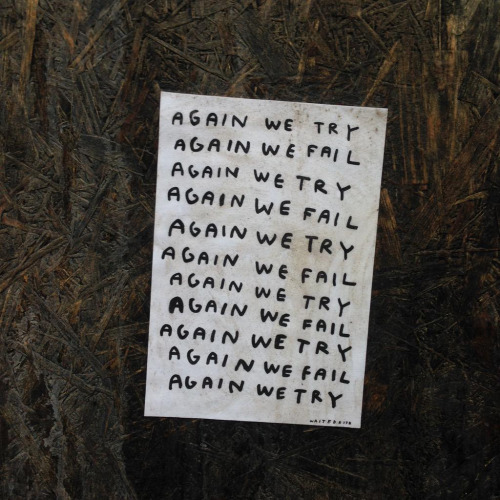 AGAIN WE TRY
AGAIN WE FAIL
AGAIN WE TRY
AGAIN WE FAIL
AGAIN WE TRY
AGAIN WE FAIL
AGAIN WE TRY
AGAIN WE FAIL
AGAIN WE TRY
AGAIN WE FAIL
AGAIN WE TRY